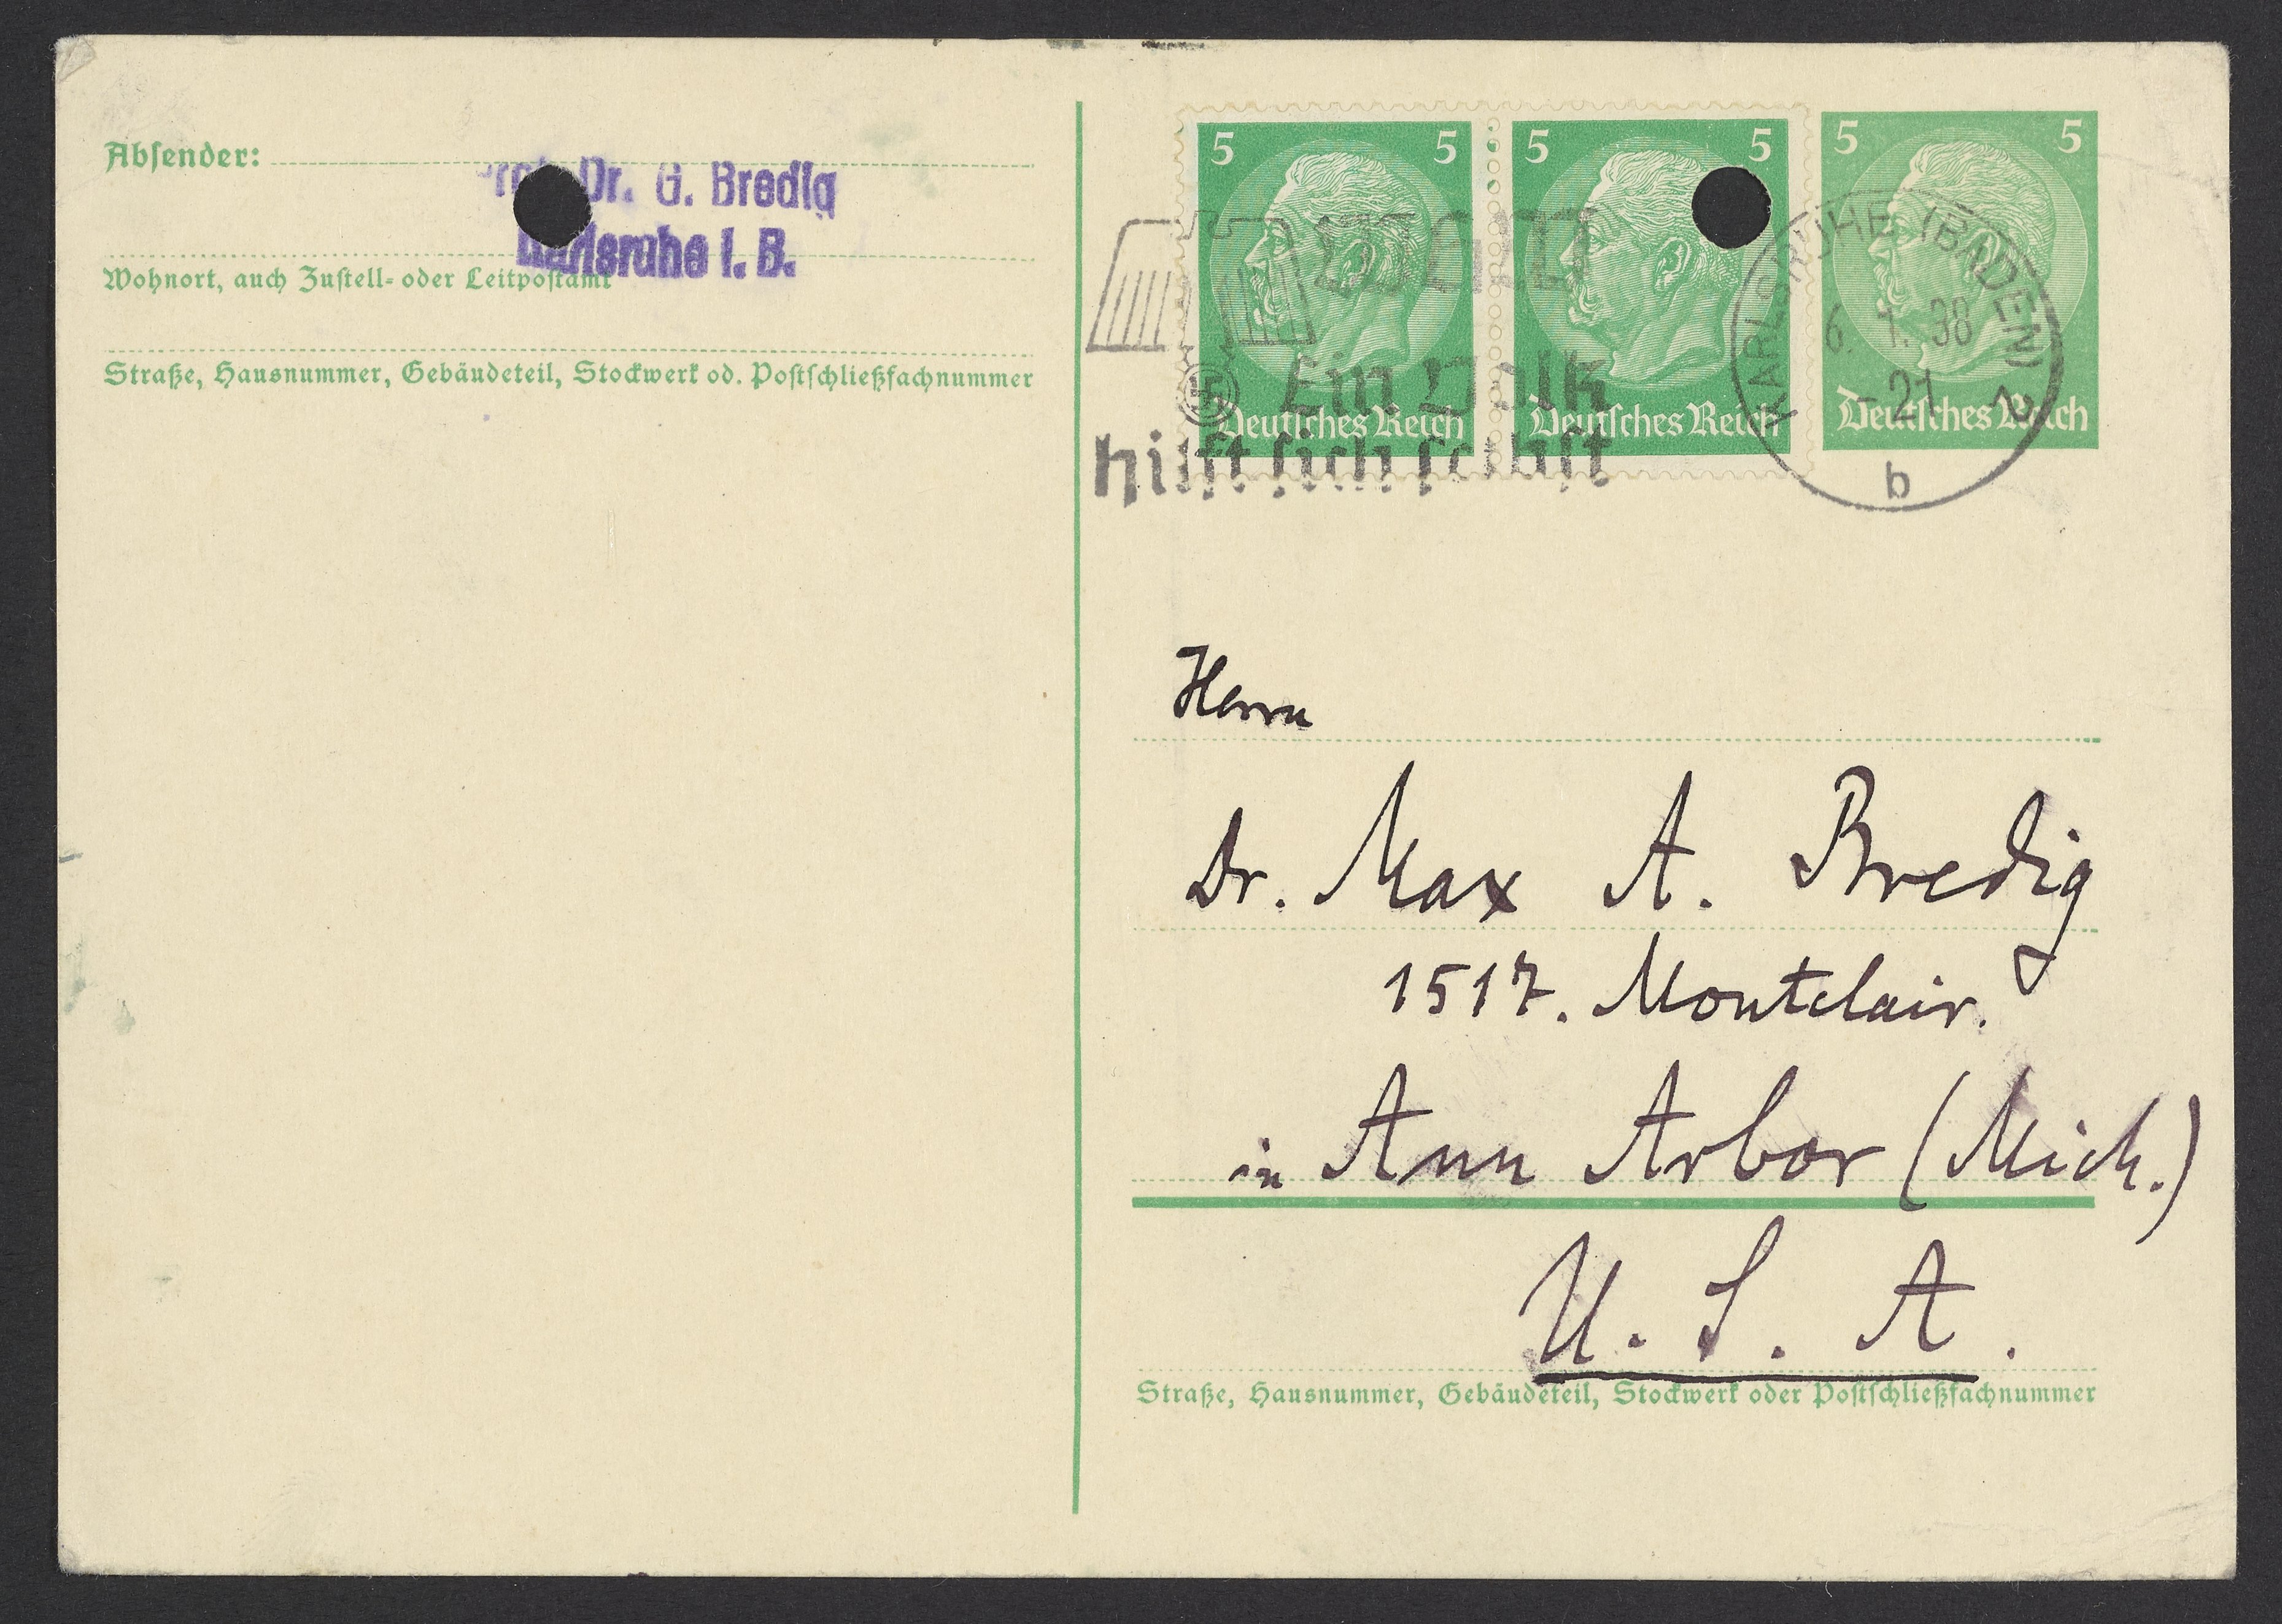 Absender:
Dr. G. Bredig
Karlsruhe i. B.
Wohnort, auch Zustell- oder Leitpostamt
Straße, Hausnummer, Gebäudeteil, Stockwerk od. Postschließfachnummer
5 5
5 5
5 5
Deutsches Reich
Deutsches Reich
Deutsches Reich
Ein Volk
hilft sich selbst
KARLSRUHE (BADEN) 2
6. 1. 38
-21
b
Herrn
Dr. Max A. Bredig
1517. Montclair.
in Ann Arbor (Mich.)
U. S. A.
Straße, Hausnummer, Gebäudeteil, Stockwerk oder Postschließfachnummer